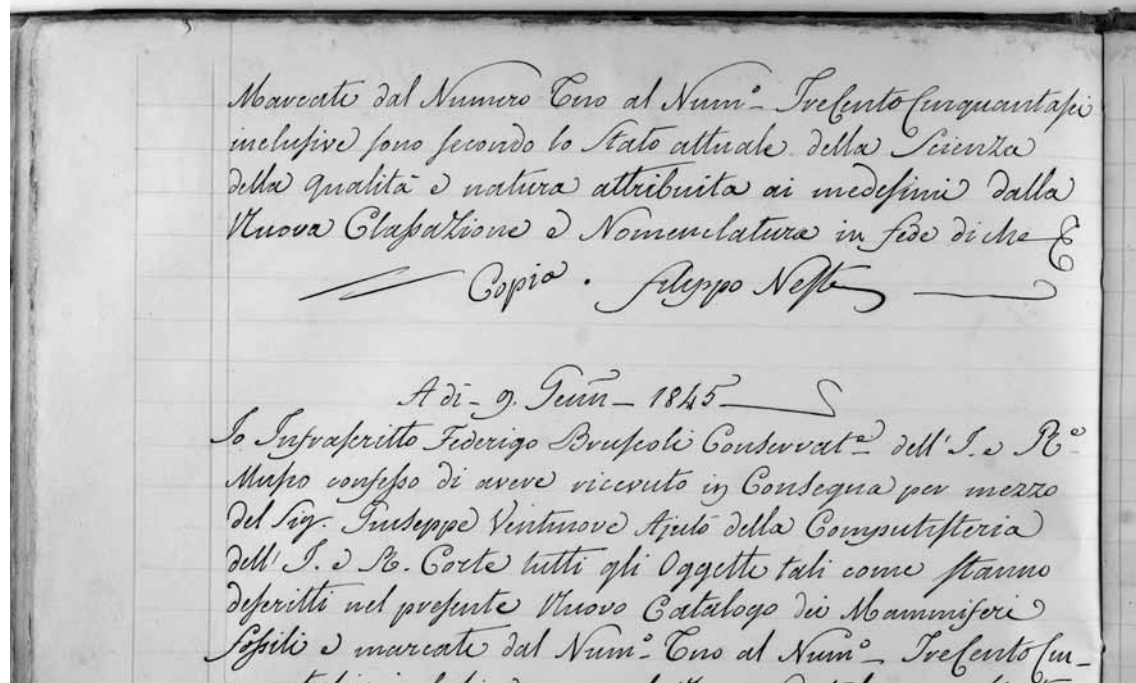 Marcati dal Numero Uno al Num.º Trecento Cinquantasei
inclusive sono secondo lo Stato attuale della Scienza
della qualità e natura attribuita ai medesimi dalla
Nuova Classazione e Nomenclatura in fede di che
Copia. Filippo Nesti
A dì 9. Genn 1845
Io Infrascritto Federigo Bruscoli Conservat.e dell' I. e R.e
Museo confesso di avere ricevuto in Consegna per mezzo
del Sig. Giuseppe Ventinove Ajuto della Computisteria
dell' I. e R. Corte tutti gli Oggetti tali come stanno
descritti nel presente Nuovo Catalogo dei Mammiferi
fossili e marcati dal Num.º Uno al Num.º Trecento Cin-